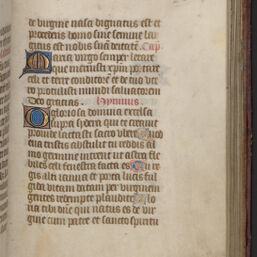 de virgine nasci dignatus est et
procedens homo sine semine lar
gitus est nobis suam deitatem. Cap
Maria virgo semper letare
que meruisti xpm portare
celi et terre conditorem et de tuo ute
ro protulisti mundi salvatorem
Deo gracias. Hymnus.
O gloriosa domina excelsa
supra sydera qui te creavit
provide lactasti sacro ubere Quod
eva tristis abstulit tu reddis al
mo germine intrent ut astra fle
biles celi fenestra facta es Tu re
gis alti ianua et porta lucis ful
gida vitam datam per virginem
gentes redempte plaudite Glo
ria tibi dne qui natus es de vir
gine cum patre et sancto spiritu